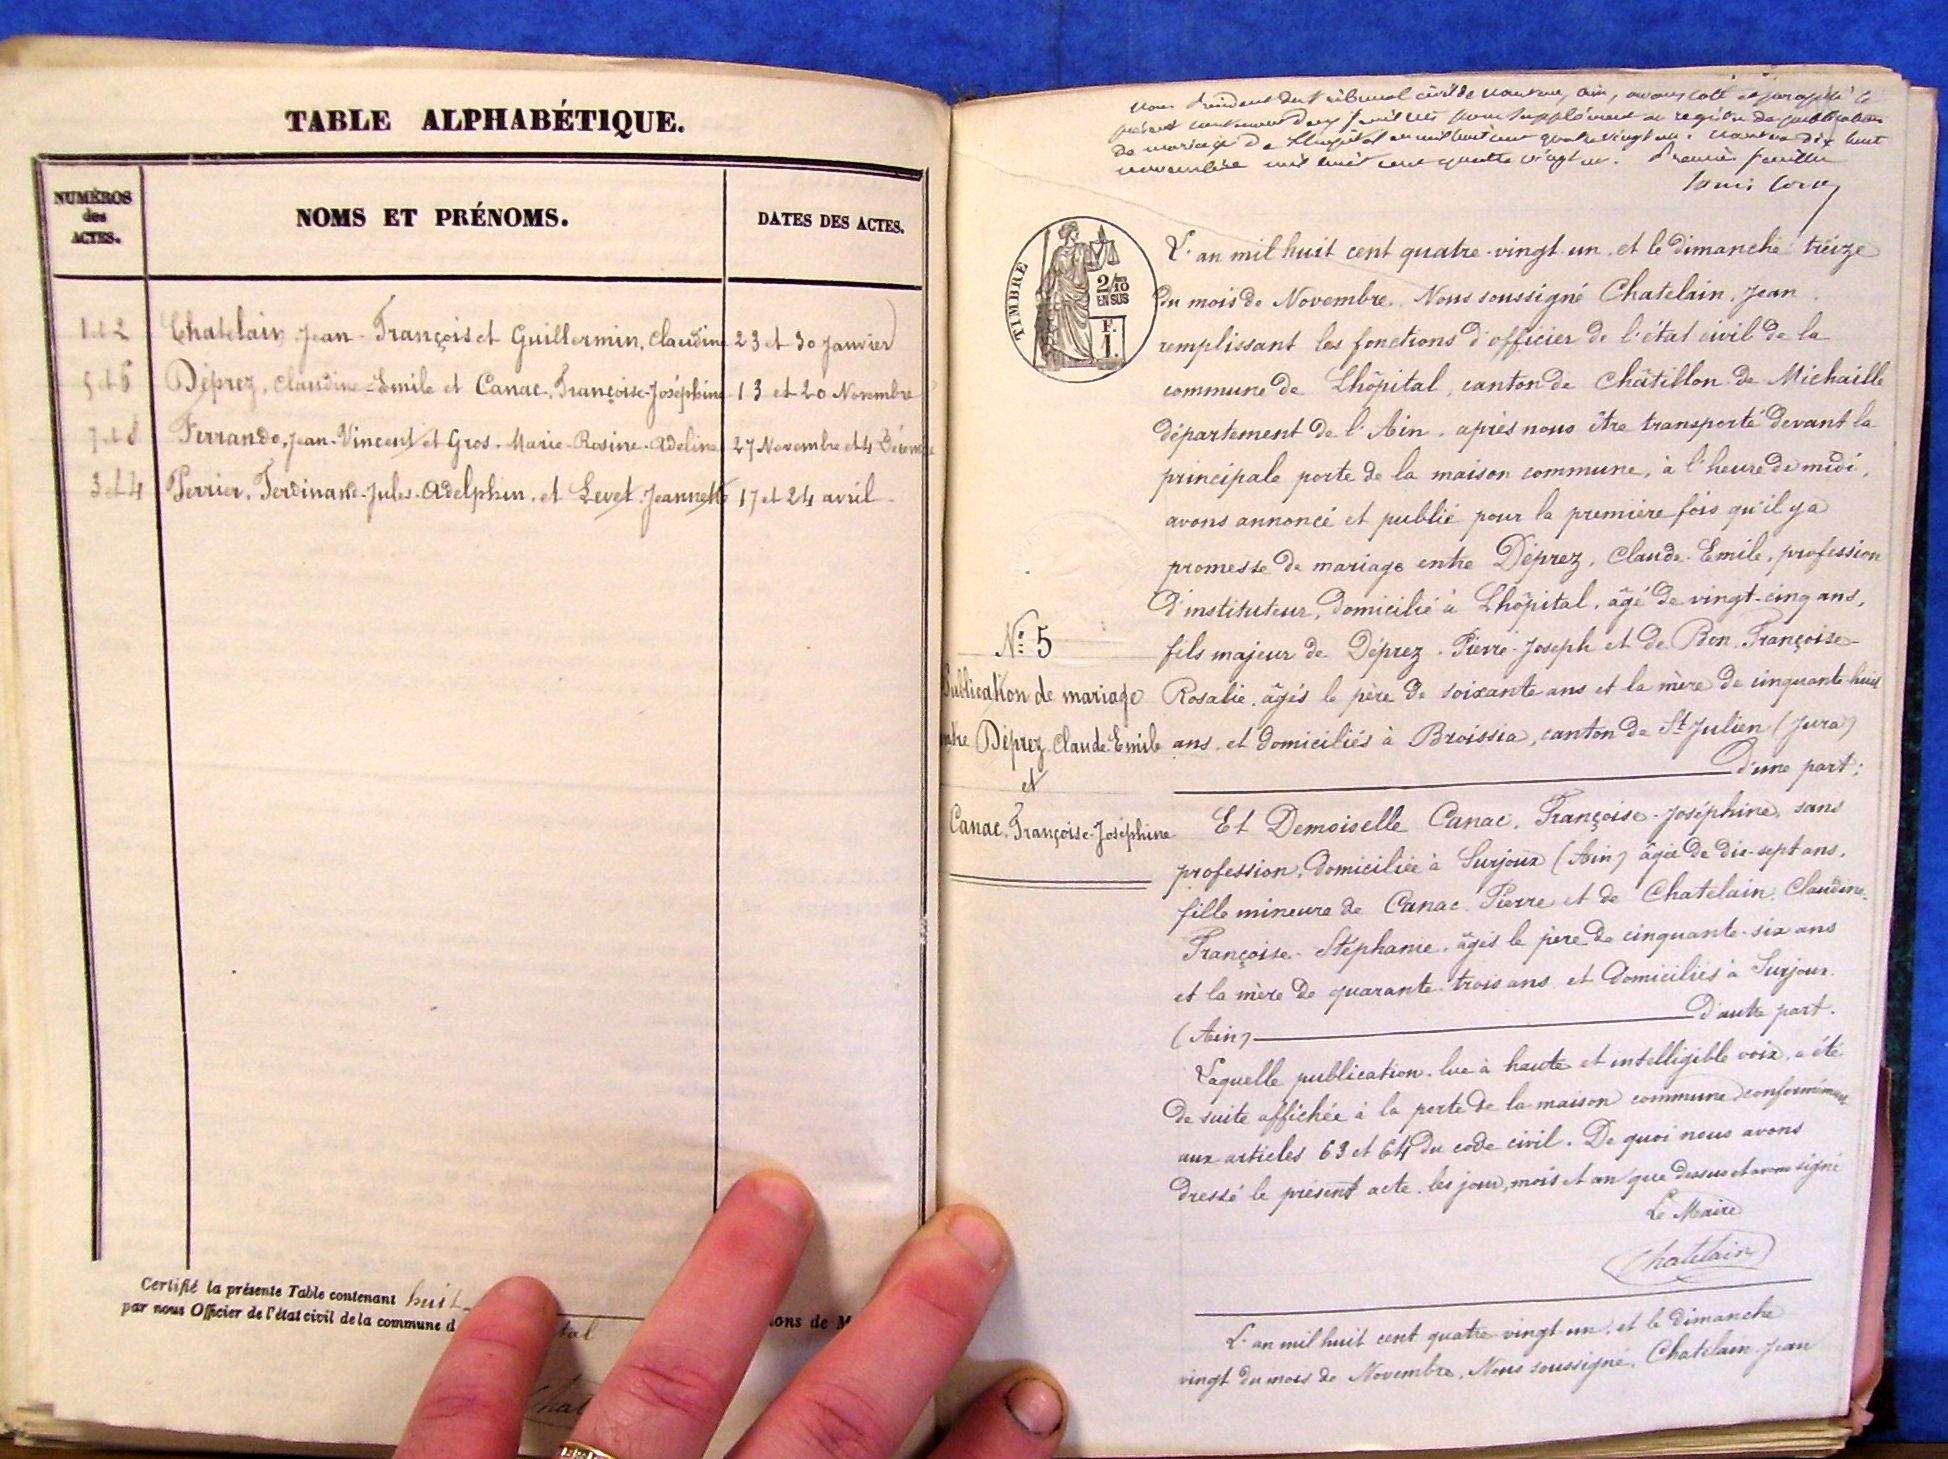 TABLE ALPHABÉTIQUE.
NUMÉROS
des
ACTES.
NOMS ET PRÉNOMS.
DATES DES ACTES.
1 et 2 Chatelain, Jean-François et Guillermin, Claudine 23 et 30 Janvier
5 et 6 Déprez, Claudine-Emile et Canac, Françoise-Joséphine 13 et 20 Novembre
7 et 8 Ferrando, Jean-Vincent et Gros, Marie-Rosine-Adeline 27 Novembre et 4 Décembre
3 et 4 Perrier, Ferdinand-Jules-Adelphin, et Levet, Jeannette 17 et 24 avril
Certifié la présente Table contenant huit
par nous Officier de l'état civil de la commune d
tal
ions de M
Chat
Nous Président du tribunal civil de Nantua, Ain, avons coté et paraphé le
présent contenant deux feuillets pour supplément au registre de publications
de mariage de Lhôpital en mil huit cent quatre vingt un. Nantua dix huit
novembre mil huit cent quatre vingt un. Premier feuillet
TIMBRE
2/10
EN SUS
F.
1.
L'an mil huit cent quatre-vingt-un, et le dimanche treize
du mois de Novembre, Nous soussigné Chatelain, Jean,
remplissant les fonctions d'officier de l'état civil de la
commune de Lhôpital, canton de Châtillon-de-Michaille
département de l'Ain, après nous être transporté devant la
principale porte de la maison commune, à l'heure de midi,
avons annoncé et publié pour la première fois qu'il y a
promesse de mariage entre Déprez, Claude-Emile, profession
d'instituteur, domicilié à Lhôpital, âgé de vingt-cinq ans,
fils majeur de Déprez, Pierre-Joseph et de Bon, Françoise-
Rosalie, âgés le père de soixante ans et la mère de cinquante-huit
ans, et domiciliés à Broissia, canton de St Julien (Jura)
d'une part;
N° 5
Publication de mariage
entre Déprez Claude Emile
et
Canac, Françoise-Joséphine
Et Demoiselle Canac, Françoise-Joséphine, sans
profession, domiciliée à Surjoux (Ain) âgée de dix-sept ans,
fille mineure de Canac, Pierre et de Chatelain, Claudine-
Françoise-Stéphanie, âgés le père de cinquante-six ans
et la mère de quarante-trois ans et domiciliés à Surjoux
(Ain) d'autre part.
Laquelle publication, lue à haute et intelligible voix, a été
de suite affichée à la porte de la maison commune conformément
aux articles 63 et 64 du code civil. De quoi nous avons
dressé le présent acte, les jour, mois et an que dessus et avons signé
Le Maire
Chatelain
L'an mil huit cent quatre-vingt-un, et le dimanche
vingt du mois de Novembre, Nous soussigné, Chatelain, Jean